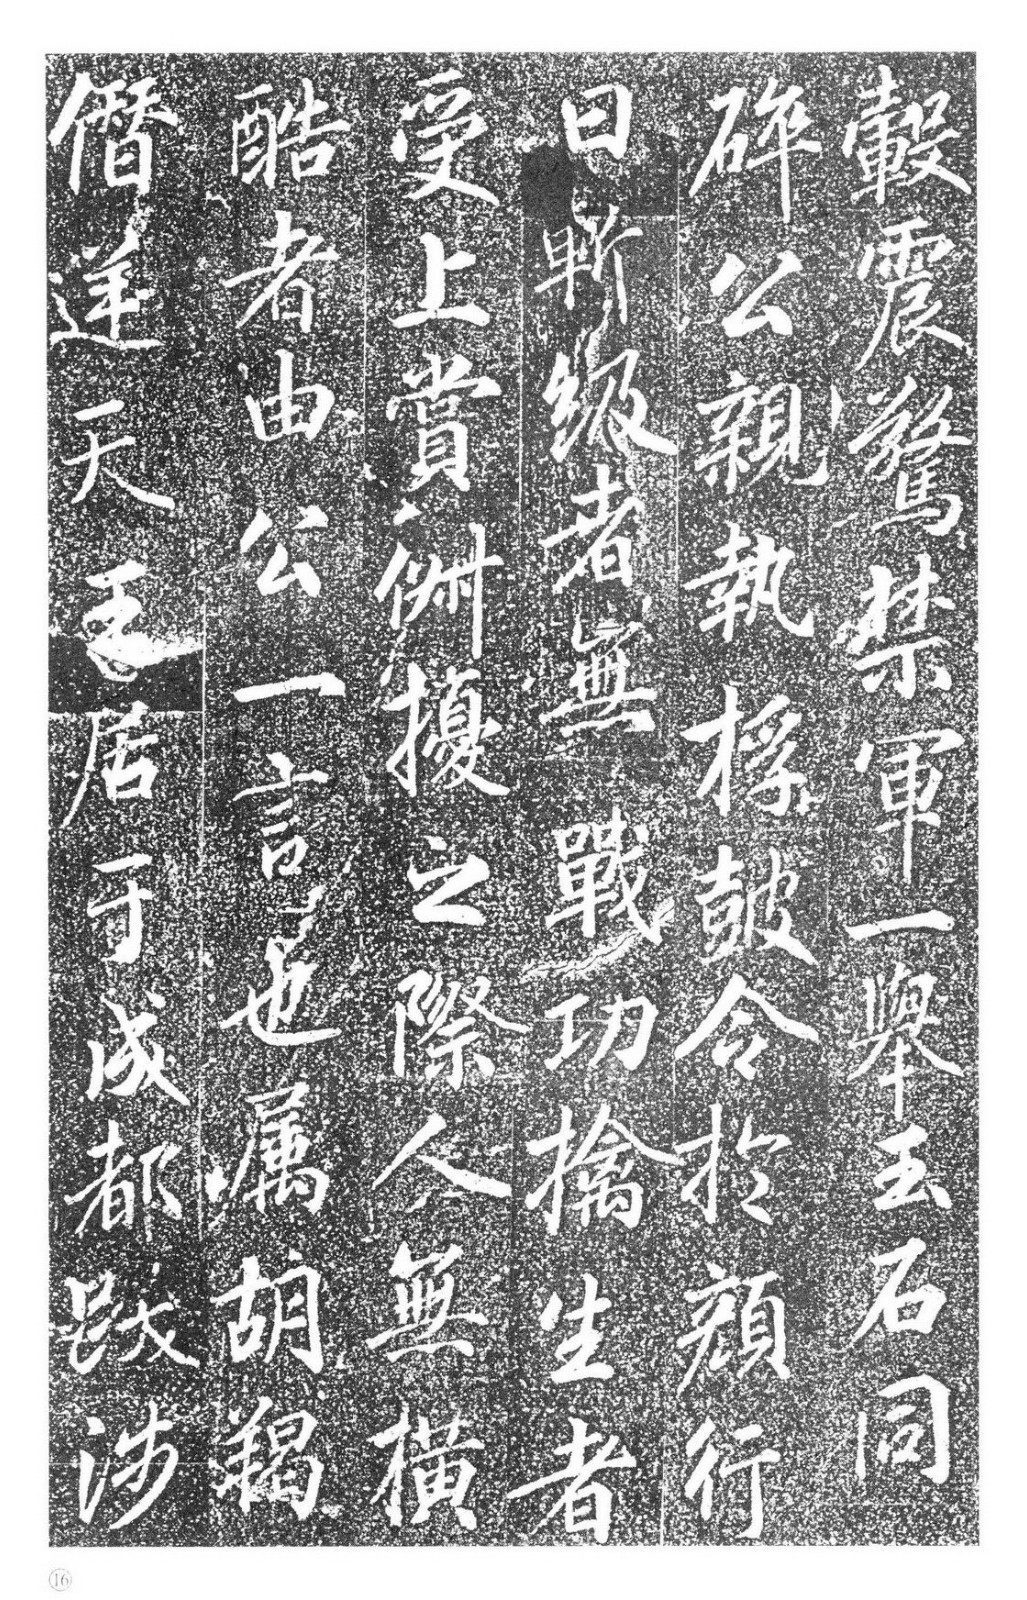 轂震驚禁軍一舉玉石同
碎公親執桴鼓令於顏行
曰斬級者無戰功擒生者
受上賞倂擾之際人無橫
酷者由公一言也属胡羯
僭逆天王居于成都跋涉
16